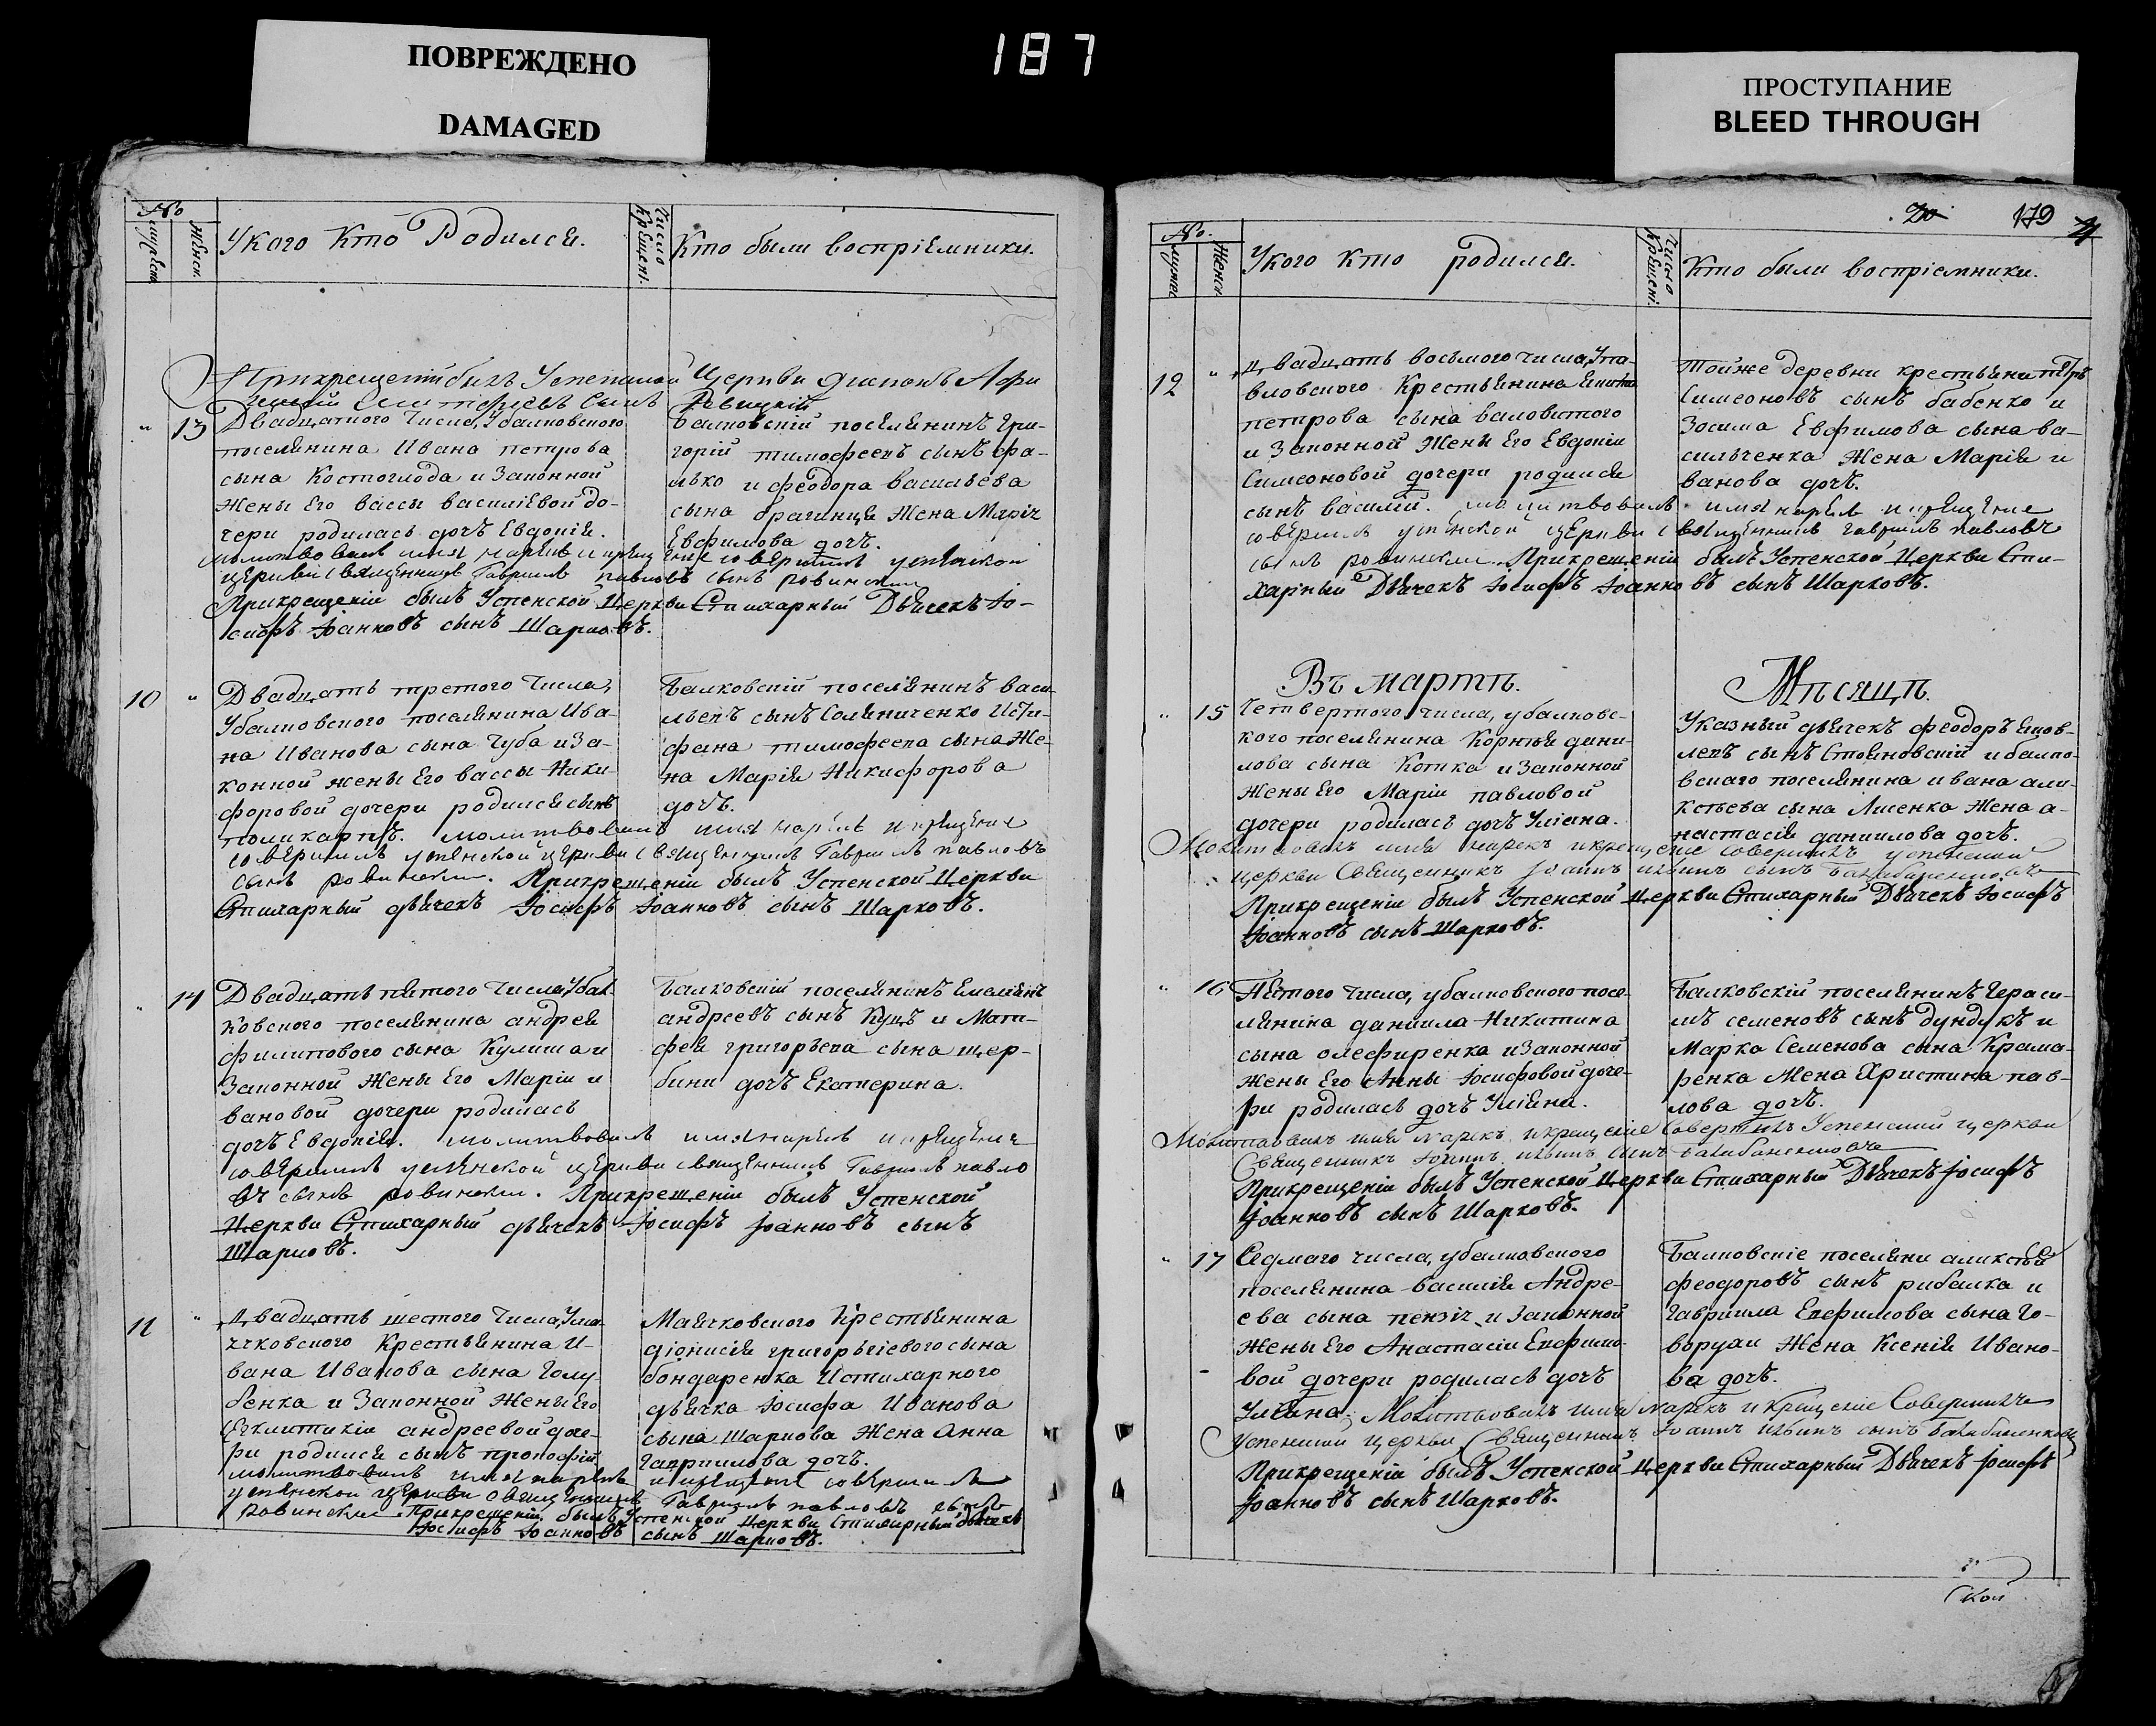 ПОВРЕЖДЕНО
DAMAGED
187
ПРОСТУПАНИЕ
BLEED THROUGH
№
мужеска
женск.
Укого Кто Родился.
Число крещені.
Кто были воспріемники.
Прикрещеніи былъ Успенской Церкви диаконъ
сынъ Левицкій
" 13
Двадцатого Числа, Убалковского
поселянина Ивана петрова
сына Костоглода и Законной
Жены Его вассы василіевой до-
чери родилась дочъ Евдокія.
Балковскій поселянинъ Гри-
горій тимофеевъ сынъ фа-
лько и феодора Васильева
сына брагинця Жена Марія
Евфимова дочъ.
молитвовалъ имя нарекъ и крещение совершилъ успенской
церкви священникъ Гавриилъ павловъ сынъ ровински
Прикрещеніи былъ Успенской Церкви Стихарный Дьячекъ Іо-
сифъ Іоанновъ сынъ Шарковъ.
10 "
Двадцать третого Числа,
Убалковского поселянина Ива-
на Иванова сына Чуба и За-
конной жены Его вассы Ники-
форовой дочери родился сынъ
поликарпъ. молитвовалъ имя нарекъ и крещение
совершилъ успенской церкви священникъ Гавриилъ павловъ
сынъ ровински. Прикрещеніи былъ Успенской Церкви
Стихарный дьячекъ Іосифъ Іоанновъ сынъ Шарковъ.
Балковскій поселянинъ васи-
льевъ сынъ Соляниченко И Сти-
фана тимофеева сына Же-
на Марія Никифорова
дочъ.
" 14
Двадцать пятого Числа, Убал-
ковского поселянина андрея
филипового сына Кулиша и
Законной Жены Его Маріи и
вановой дочери родилась
дочъ Евдокія. молитвовалъ имя нарекъ и крещение
совершилъ успенской церкви священникъ Гавриилъ павло
въ сынъ ровински. Прикрещеніи былъ Успенской
Церкви Стихарный дьячекъ Іосифъ Іоанновъ сынъ
Шарковъ.
Балковскій поселянинъ Емеліянъ
андреевъ сынъ Куцъ и Мати-
фея григорьева сына щер-
бини дочъ Екатерина.
11 "
Двадцать шестого Числа, Ума-
ячковского Крестьянина И-
вана Иванова сына Голу-
бенка и Законной Жены Его
андреевой доче-
ри родился сынъ прокофій
молитвовалъ имя нарекъ и крещение совершилъ
успенской церкви священникъ Гавриилъ павловъ сынъ
Ровински. Прикрещеніи былъ Успенской Церкви Стихарный дьячекъ
Іосифъ Іоанновъ сынъ Шарковъ.
Маячковского Крестьянина
діонисія григорьгіевого сына
бондаренка И Стихарного
дьячка Іосифа Иванова
сына шаркова Жена Анна
гавриилова дочъ.
20
179
№.
Женск
Укого Кто родился.
Число Крещені.
Кто были воспріемники.
12 "
Двадцать восьмого числа, Упа-
вловского Крестьянина
петрова сына валовитого
и Законной Жены Его Евдокіи
Симеоновой дочери родился
сынъ василій. молитвовалъ имя нарекъ и крещение
совершилъ успенской церкви священникъ гавриилъ павловъ
сынъ ровински. Прикрещеніи былъ Успенской Церкви Сти-
харный Дьячекъ Іосифъ Іоанновъ сынъ Шарковъ.
тойже деревни крестьянинъ
Симеоновъ сынъ бабенко и
Зосима Евфимова сына ва-
сильченка Жена Марія и
ванова дочъ.
Въ мартѣ.
Мѣсяцѣ.
" 15
Четвертого числа, убалковс-
кого поселянина Корнія дани-
лова сына Котика и Законной
жены Его Маріи павловой
дочери родилась дочъ Уліана.
Молитвовалъ имя нарекъ и крещение совершилъ успенской
церкви Священникъ Іоаннъ ильинъ сынъ
Прикрещеніи былъ Успенской Церкви Стихарный Дьячекъ Іосифъ
Іоанновъ сынъ Шарковъ.
Указный дьячекъ феодоръ яков-
левъ сынъ Стояновскій и балко-
вскаго поселянина ивана али-
ксѣева сына Лисенка Жена а-
настасія даниилова дочъ.
" 16
Пятого числа, убалковского посе-
лянина даниила Никитина
сына олефиренка и Законной
жены Его Анны Іосифовой доче-
ри родилась дочъ Уліяна.
Молитвовалъ имя нарекъ и крещение Совершилъ Успенской церкви
Священникъ Іоаннъ ильинъ сынъ
Прикрещеніи былъ Успенской Церкви Стихарный Дьячекъ Іосифъ
Іоанновъ сынъ Шарковъ.
Балковскій поселянинъ Гераси-
мъ семеновъ сынъ дундукъ и
Марка Семенова сына Крама-
ренка Жена Христина пав-
лова дочъ.
" 17
Седмаго числа, убалковского
поселянина василія Андре-
ева сына и Законной
жены Его Анастасіи Евфимо-
вой дочери родилась дочъ
Уліана. Молитвовалъ имя нарекъ и крещение Совершилъ
Успенской церкви Священникъ Іоаннъ ильинъ сынъ
Прикрещеніи былъ Успенской Церкви Стихарный Дьячекъ Іосифъ
Іоанновъ сынъ Шарковъ.
Балковскіе поселяни аликсѣй
феодоровъ сынъ рибалка и
Гавриила Евфимова сына Го-
ворухи Жена Ксенія Ивано-
ва дочъ.
ской